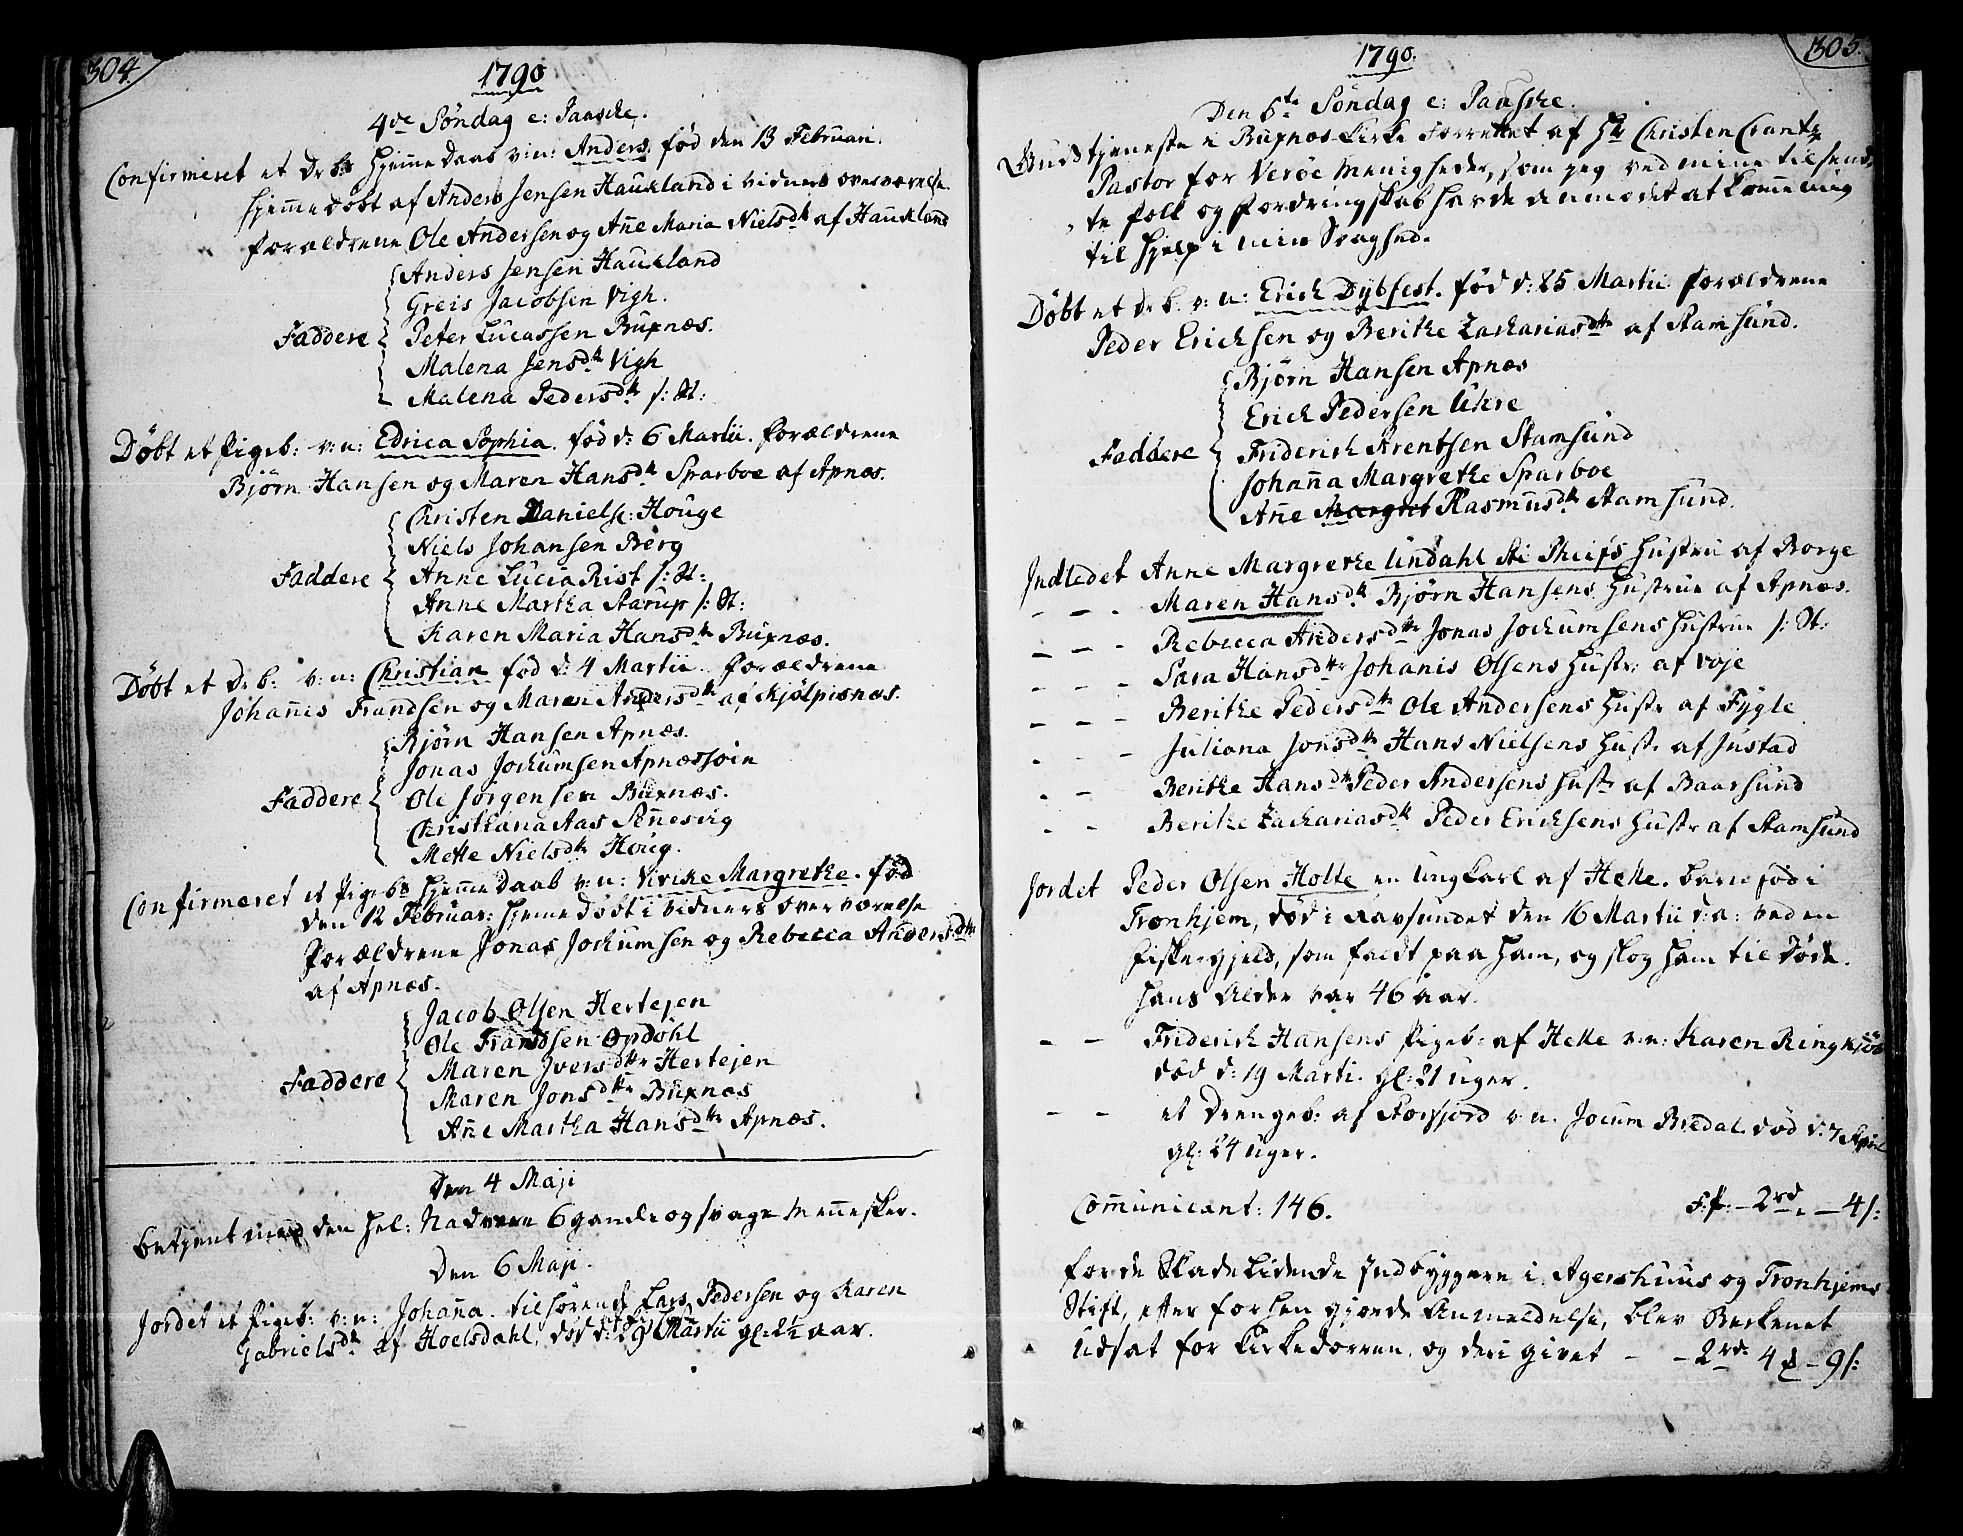 304.
1790
4de Söndag e: Paaske.
Confirmeret et Dr.b. hjemme Daab v: n: Anders. fød den 13 Februari.
hjemmedøbt af Anders Jensen Haukland i vidners overværelse.
forældrene Ole Andersen og Anne Maria Nielsdtr af Haukland
Anders Jensen Haukland
Greis Jacobsen Vigh.
Faddere Peter Lucassen Buxnæs.
Malena Jensdtr Vigh
Malena Pedersdtr /: St:
Døbt et Pigeb: v: n: Edrica Sophia. fød d: 6 Martii. forældrene
Bjørn Hansen og Maren Hansdtr Sparboe af Apnæs.
Christen Daniels: Houge
Niels Johansen Berg
Faddere Anne Lucia Rist /: St:
Anne Martha Aarup /: St:
Karen Maria Hansdtr Buxnæs.
Døbt et Dr.b: v: n: Christian fød d: 4 Martii. forældrene
Johannes Frandsen og Maren Andersdtr af Kjølpisnæs.
Bjørn Hansen Apnæs.
Jonas Jochumsen Apnæssøin
Faddere Ole Jørgensen Buxnæs.
Christiana Aas Sennesvig
Mette Nielsdtr Houg.
Confirmeret et Pigebs hjemme Daab v: n: Vivike Margrethe. fød
den 12 Februar: hjemmedøbt i vidners overværelse
forældrene Jonas Jochumsen og Rebecca Andersdtr
af Apnæs.
Jacob Olsen Hertejen
Ole Frandsen Opdøhl
Faddere Maren Iversdtr Hertejen
Maren Jonsdtr Buxnæs
Anne Martha Hansdtr Apnæs.
Den 4 Maji
betjent med den hel: Nadvere 6 gamle og svage Mennesker.
Den 6 Maji.
Jordet et Pigeb: v: n: Johanna. tilhörende Lars Pedersen og Karen
Gabrielsdtr af Hoelsdahl, død d: 29 Martii gl: 2½ aar.
305.
1790.
Den 5te Söndag e: Paaske.
Gudstjeneste i Buxnæs Kirke forrettet af Hr Christen Crantz
Pastor for Verøe Menigheder, som jeg ved mine tilsend-
te folk og fordringskab havde anmodet at komme mig
til hjelp i min Svaghed.
Døbt et Dr.b. v: n: Erich Dybfest. fød d: 25 Martii forældrene
Peder Erichsen og Berithe Zachariasdtr af Stamsund.
Bjørn Hansen Apnæs
Erich Pedersen Ure
Faddere Friderich Arentsen Stamsund
Johanna Margrethe Sparboe
Anne Margret Rasmusdtr Stamsund.
Indledet Anne Margrethe Lindahl Sti Theifs Hustru af Borge
- - - Maren Hansdtr Bjørn Hansens Hustrue af Apnæs.
- - - Rebecca Andersdtr Jonas Jochumsens Hustrue /: St:
- - - Sara Hansdtr Johanis Olsens Hustr: af Voje
- - - Berithe Pedersdtr Ole Andersens Hustr af Fygle
- - Juliana Jonsdtr Hans Nielsens Hustr. af Justad
- - Berithe Hansdtr Peder Andersens Hustr af Baarsund
- - Berithe Zachariasdtr Peder Erichsens Hustr af Stamsund
Jordet Peder Olsen Holte en ungkarl af Helle. barnefød i
Tronhjem, død i Ravsundet den 16 Martii d: a: ved en
fiskehjeld, som faldt paa ham, og slog ham til døde.
hans Alder var 46 aar.
- - Friderich Hansens Pigeb: af Helle v: n: Karen Ringkjøb
død d: 19 Marti. gl: 21 uger.
- - et Drengeb: af Storfjord v: n. Jocum Bredal. død d: 7 April
gl: 24 uger.
Communicant: 146. F.P: - 2rd. - 4 s:
for de Skadelidende Indbyggere i Agershuus og Tronhjems
Stift, efter forhen gjorde Anmeldelse, blev Bekkenet
udsat for Kirkedørren, og deri givet - - 2rd: 4 ₰ - 9 s: